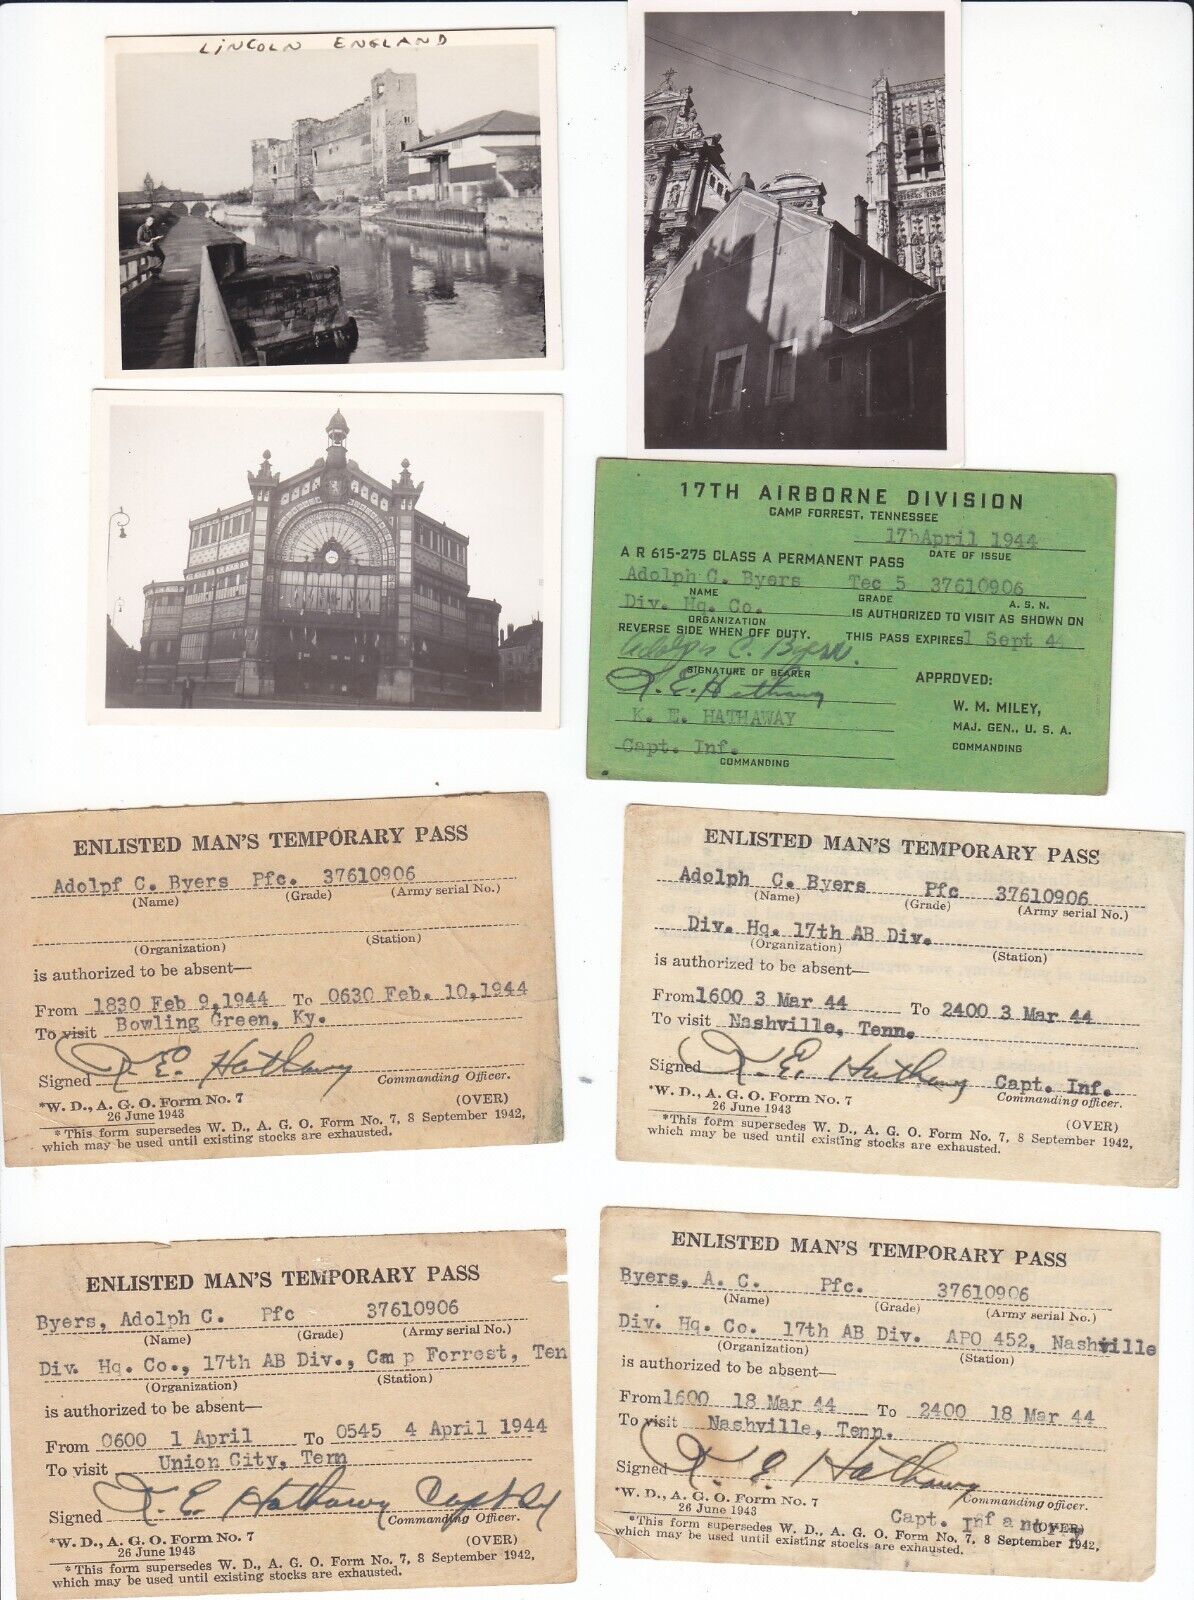 LINCOLN ENGLAND
17TH AIRBORNE DIVISION
CAMP FORREST, TENNESSEE
17hApril 1944
DATE OF ISSUE
A R 615-275 CLASS A PERMANENT PASS
Adolph C. Byers Tec 5 37610906
NAME GRADE A. S. N.
Div. Hq. Co. IS AUTHORIZED TO VISIT AS SHOWN ON
ORGANIZATION
REVERSE SIDE WHEN OFF DUTY. THIS PASS EXPIRES 1 Sept 44
Adolph C. Byers.
SIGNATURE OF BEARER
K. E. Hathaway
APPROVED:
K. E. HATHAWAY
W. M. MILEY,
MAJ. GEN., U. S. A.
Capt. Inf.
COMMANDING
COMMANDING
ENLISTED MAN'S TEMPORARY PASS
Adolpf C. Byers Pfc. 37610906
(Name) (Grade) (Army serial No.)
(Organization) (Station)
is authorized to be absent—
From 1830 Feb 9,1944 To 0630 Feb. 10,1944
To visit Bowling Green, Ky.
Signed K. E. Hathaway
Commanding Officer.
*W. D., A. G. O. Form No. 7 (OVER)
26 June 1943
*This form supersedes W. D., A. G. O. Form No. 7, 8 September 1942,
which may be used until existing stocks are exhausted.
ENLISTED MAN'S TEMPORARY PASS
Adolph C. Byers Pfc 37610906
(Name) (Grade) (Army serial No.)
Div. Hq. 17th AB Div.
(Organization) (Station)
is authorized to be absent—
From 1600 3 Mar 44 To 2400 3 Mar 44
To visit Nashville, Tenn.
Signed K. E. Hathaway Capt. Inf.
Commanding officer.
*W. D., A. G. O. Form No. 7
26 June 1943 (OVER)
*This form supersedes W. D., A. G. O. Form No. 7, 8 September 1942,
which may be used until existing stocks are exhausted.
ENLISTED MAN'S TEMPORARY PASS
Byers, Adolph C. Pfc 37610906
(Name) (Grade) (Army serial No.)
Div. Hq. Co., 17th AB Div., Camp Forrest, Ten
(Organization) (Station)
is authorized to be absent—
From 0600 1 April To 0545 4 April 1944
To visit Union City, Tenn
Signed K. E. Hathaway Capt Inf
Commanding Officer.
*W. D., A. G. O. Form No. 7 (OVER)
26 June 1943
*This form supersedes W. D., A. G. O. Form No. 7, 8 September 1942,
which may be used until existing stocks are exhausted.
ENLISTED MAN'S TEMPORARY PASS
Byers, A. C. Pfc. 37610906
(Name) (Grade) (Army serial No.)
Div. Hq. Co. 17th AB Div. APO 452, Nashville
(Organization) (Station)
is authorized to be absent—
From 1600 18 Mar 44 To 2400 18 Mar 44
To visit Nashville, Tenn.
Signed K. E. Hathaway
Commanding officer.
*W. D., A. G. O. Form No. 7 Capt. Infantry
26 June 1943 (OVER)
*This form supersedes W. D., A. G. O. Form No. 7, 8 September 1942,
which may be used until existing stocks are exhausted.